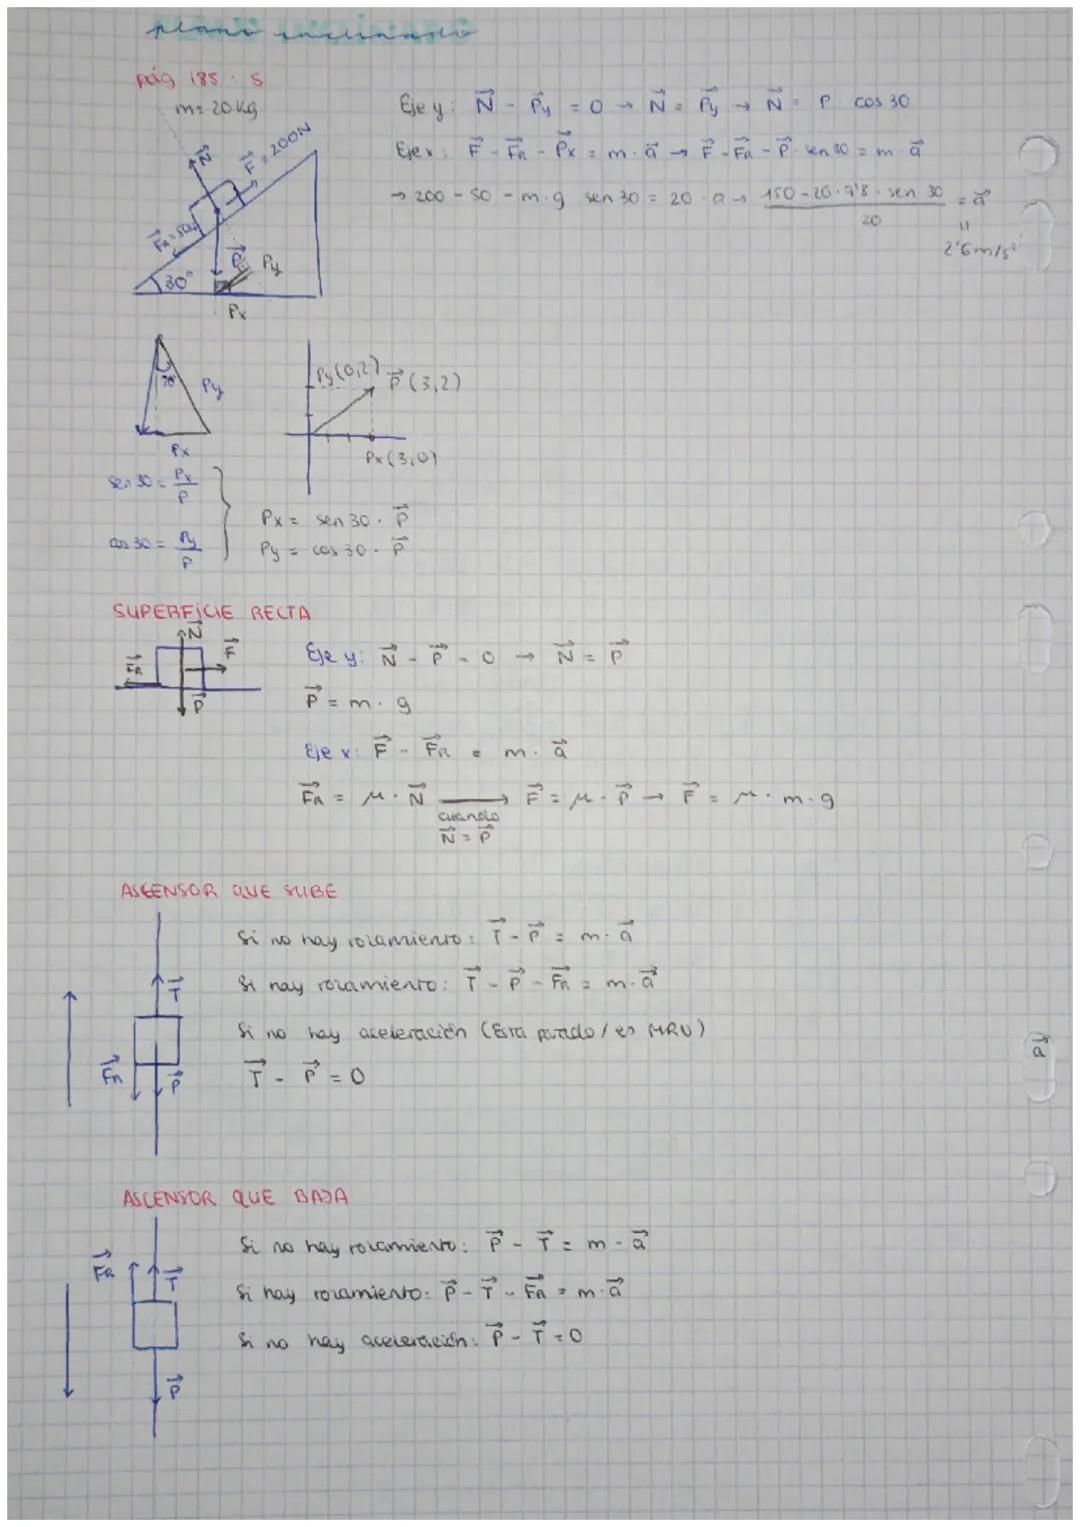 plano inclinado
pág 185 : 5
m = 20 Kg
N⃗
F⃗ = 200N
F⃗R = 50N
P⃗
Py
30°
Px
Eje y: N⃗ - P⃗y = 0 → N⃗ = P⃗y → N⃗ = P · cos 30
Eje x: F⃗ - F⃗R - P⃗x = m · a⃗ → F⃗ - F⃗R - P⃗ · sen 30 = m · a⃗
→ 200 - 50 - m · g sen 30 = 20 · a → (150 - 20 · 9'8 · sen 30) / 20 = a⃗
=
2'6 m/s²
30
Py
Px
Py (0,2)
P⃗ (3,2)
Px (3,0)
sen 30 = Px / P
cos 30 = Py / P
Px = sen 30 · P⃗
Py = cos 30 · P⃗
SUPERFICIE RECTA
N⃗
F⃗
F⃗R
P⃗
Eje y: N⃗ - P⃗ = 0 → N⃗ = P⃗
P⃗ = m · g
Eje x: F⃗ - F⃗R = m · a⃗
F⃗R = μ · N⃗ → F⃗ = μ · P⃗ → F⃗ = μ · m · g
cuando
N⃗ = P⃗
ASCENSOR QUE SUBE
Si no hay rozamiento: T⃗ - P⃗ = m · a⃗
Si hay rozamiento: T⃗ - P⃗ - F⃗R = m · a⃗
Si no hay aceleración (Está parado / es MRU)
T⃗ - P⃗ = 0
T⃗
F⃗R
P⃗
a⃗
ASCENSOR QUE BAJA
Si no hay rozamiento: P⃗ - T⃗ = m · a⃗
Si hay rozamiento: P⃗ - T⃗ - F⃗R = m · a⃗
Si no hay aceleración: P⃗ - T⃗ = 0
F⃗R
T⃗
P⃗